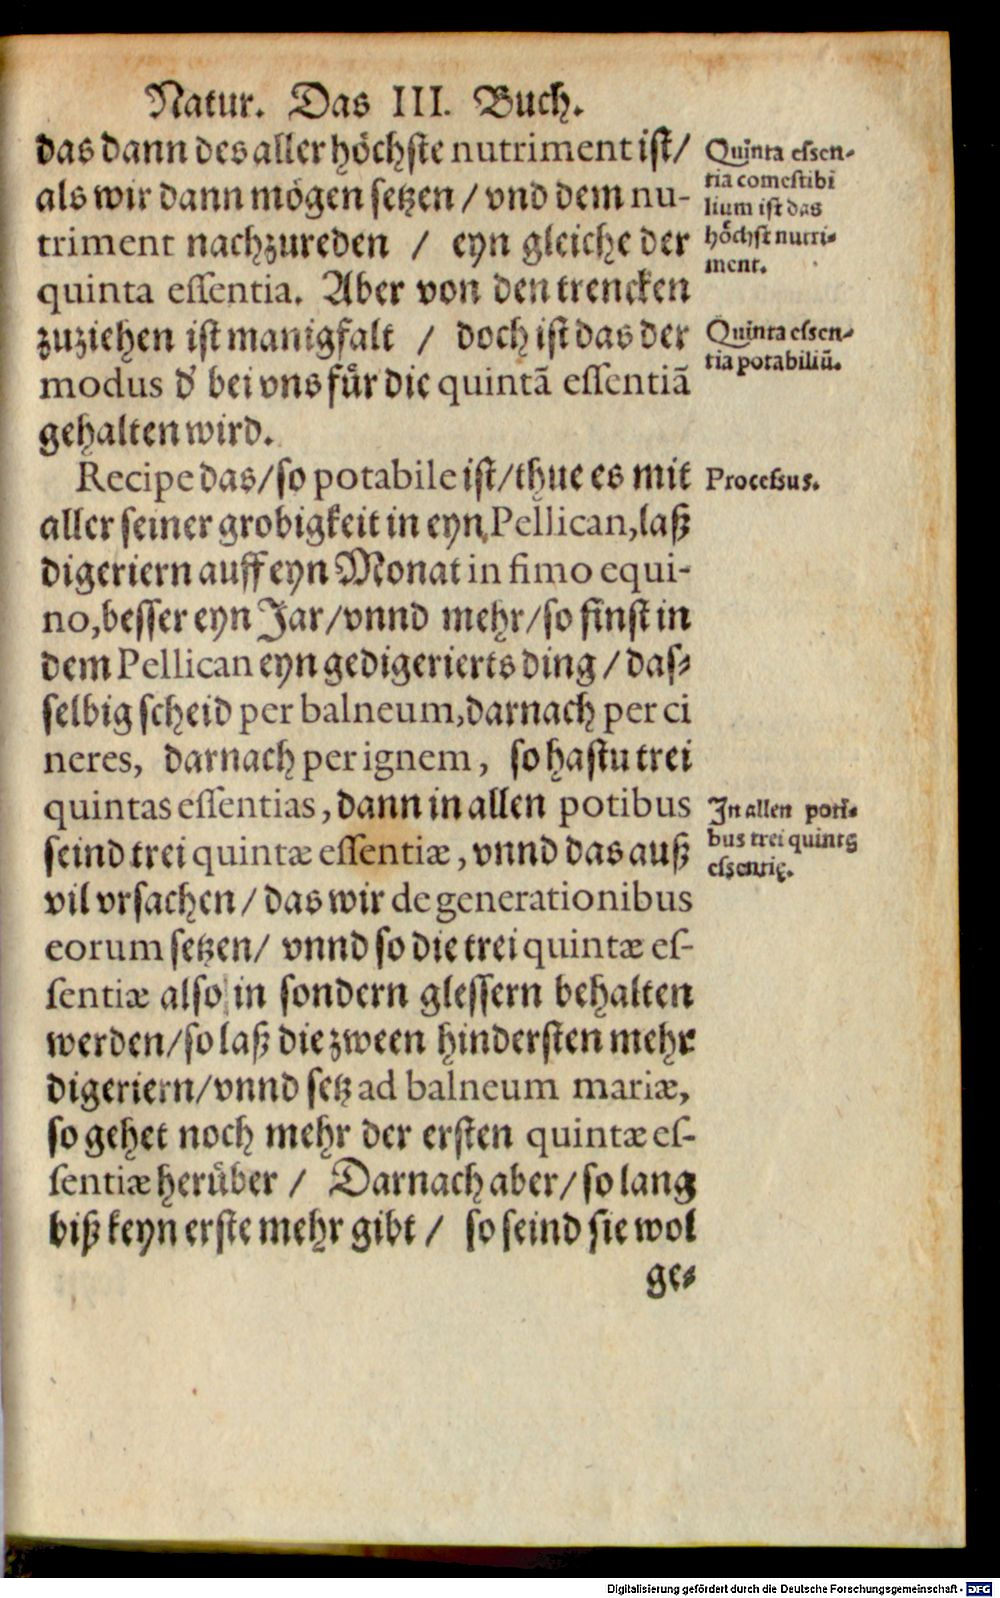 Natur. Das III. Buch.
das dann des aller hoͤchſte nutriment iſt/
als wir dann moͤgen ſetzen / vnd dem nu-
triment nachzureden / eyn gleiche der
quinta eſſentia. Aber von den trencken
zuziehen iſt manigfalt / doch iſt das der
modus d' bei vns fuͤr die quintã eſſentiã
gehalten wird.
Recipe das/ſo potabile iſt/thue es mit
aller ſeiner grobigkeit in eyn Pellican,laß
digeriern auff eyn Monat in fimo equi-
no,beſſer eyn Jar/vnnd mehr/ſo finſt in
dem Pellican eyn gedigerierts ding / das-
ſelbig ſcheid per balneum,darnach per ci
neres, darnach per ignem, ſo haſtu trei
quintas eſſentias, dann in allen potibus
ſeind trei quintæ eſſentiæ, vnnd das auß
vil vrſachen / das wir de generationibus
eorum ſetzen/ vnnd ſo die trei quintæ eſ-
ſentiæ alſo in ſondern gleſſern behalten
werden/ſo laß die zween hinderſten mehr
digeriern/vnnd ſetz ad balneum mariæ,
ſo gehet noch mehr der erſten quintæ eſ-
ſentiæ heruͤber / Darnach aber/ſo lang
biß keyn erſte mehr gibt / ſo ſeind ſie wol
ge-
Quinta eſſen-
tia comeſtibi
lium iſt das
hoͤchſt nutri-
ment.
Quinta eſſen-
tia potabiliũ.
Proceſsus.
In allen poti-
bus trei quintę
eſsentię.
Digitalisierung gefördert durch die Deutsche Forschungsgemeinschaft - DFG